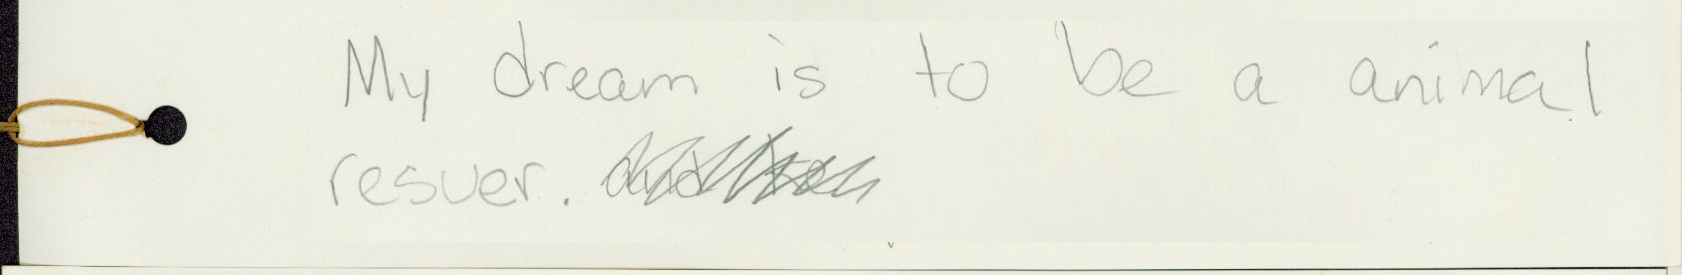 My dream is to be a animal
resuer.